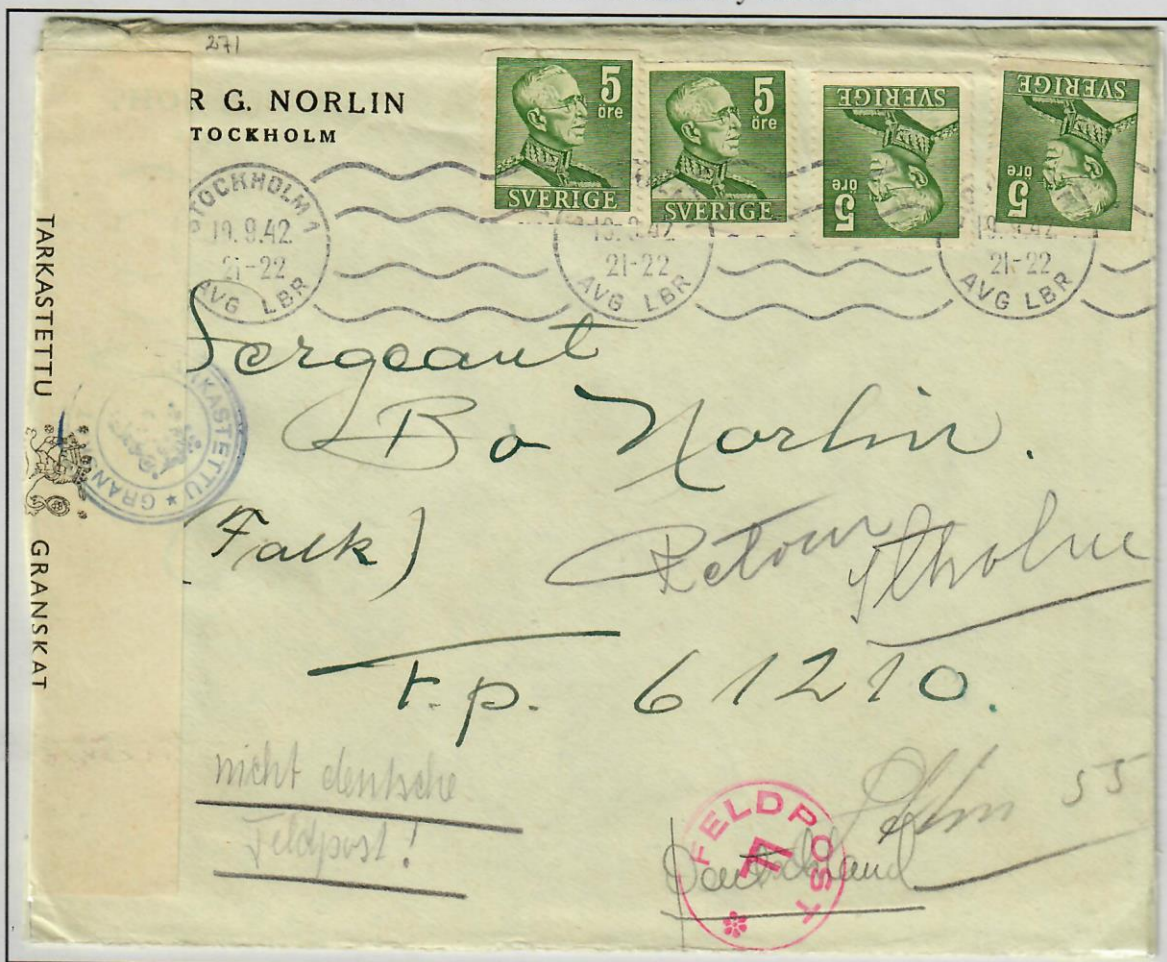 271
R G. NORLIN
TOCKHOLM
5
öre
SVERIGE
5
öre
SVERIGE
5
öre
SVERIGE
5
öre
SVERIGE
STOCKHOLM 1
19.9.42
21-22
AVG LBR
21-22
AVG LBR
21-22
AVG LBR
TARKASTETTU
GRANSKAT
KASTETTU * GRAN
Sergeant
Bo Norlin.
(Falk)
Retour
F.p. 61210.
nicht deutsche
Feldpost!
FELDPOST
Deutschland
55